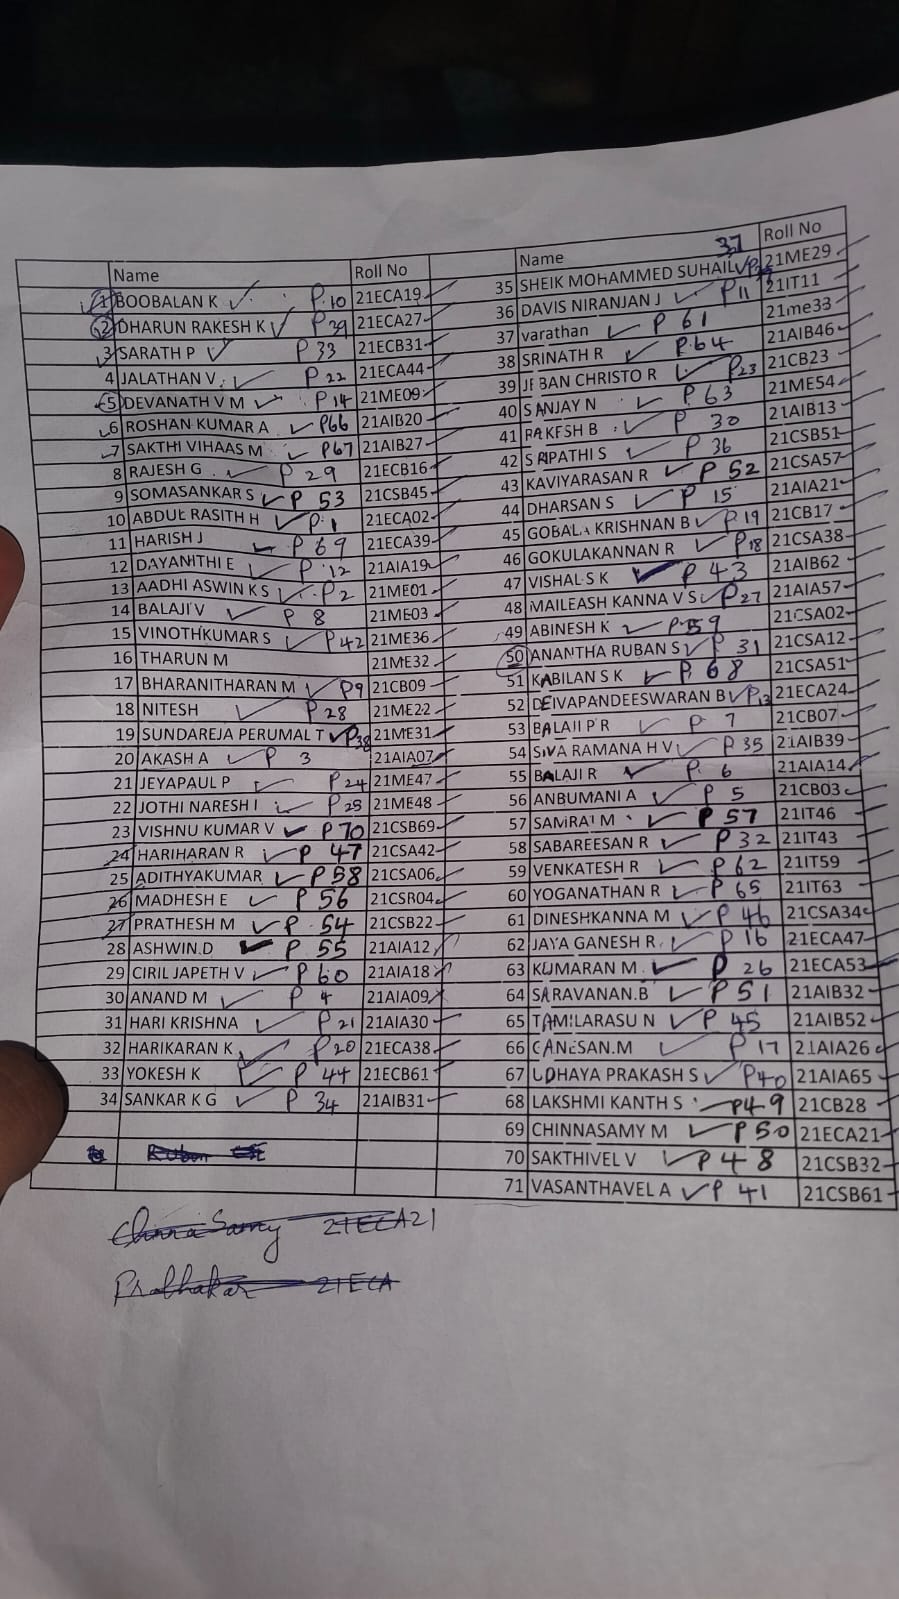 Name Roll No
1 BOOBALAN K P10 21ECA19
2 DHARUN RAKESH K P39 21ECA27
3 SARATH P P33 21ECB31
4 JALATHAN V. P22 21ECA44
5 DEVANATH V M P14 21ME09
6 ROSHAN KUMAR A P66 21AIB20
7 SAKTHI VIHAAS M P67 21AIB27
8 RAJESH G P29 21ECB16
9 SOMASANKAR S P53 21CSB45
10 ABDUL RASITH H P.1 21ECA02
11 HARISH J P69 21ECA39
12 DAYANITHI E P.12 21AIA19
13 AADHI ASWIN K S P2 21ME01
14 BALAJI V P 8 21ME03
15 VINOTHKUMAR S P42 21ME36
16 THARUN M 21ME32
17 BHARANITHARAN M P9 21CB09
18 NITESH P28 21ME22
19 SUNDAREJA PERUMAL T P38 21ME31
20 AKASH A P 3 21AIA07
21 JEYAPAUL P P24 21ME47
22 JOTHI NARESH I P25 21ME48
23 VISHNU KUMAR V P70 21CSB69
24 HARIHARAN R P 47 21CSA42
25 ADITHYAKUMAR P58 21CSA06
26 MADHESH E P 56 21CSR04
27 PRATHESH M P 54 21CSB22
28 ASHWIN.D P 55 21AIA12
29 CIRIL JAPETH V P60 21AIA18
30 ANAND M P 4 21AIA09
31 HARI KRISHNA P21 21AIA30
32 HARIKARAN K P20 21ECA38
33 YOKESH K P 44 21ECB61
34 SANKAR K G P 34 21AIB31
Chinna Samy 21ECA21
Prabhakar 21ECA
Name 37 Roll No
35 SHEIK MOHAMMED SUHAIL 21ME29
36 DAVIS NIRANJAN J P11 21IT11
37 varathan P 61 21me33
38 SRINATH R P.64 21AIB46
39 JEBAN CHRISTO R P23 21CB23
40 SANJAY N P63 21ME54
41 RAKESH B P 30 21AIB13
42 SRIPATHI S P 36 21CSB51
43 KAVIYARASAN R P 52 21CSA57
44 DHARSAN S P 15 21AIA21
45 GOBALA KRISHNAN B P19 21CB17
46 GOKULAKANNAN R P18 21CSA38
47 VISHAL S K P 43 21AIB62
48 MAILEASH KANNA V S P27 21AIA57
49 ABINESH K P59 21CSA02
50 ANANTHA RUBAN S P 31 21CSA12
51 KABILAN S K P. 68 21CSA51
52 DEIVAPANDEESWARAN B P13 21ECA24
53 BALAJI P R P 7 21CB07
54 SIVA RAMANA H V P 35 21AIB39
55 BALAJI R P 6 21AIA14
56 ANBUMANI A P 5 21CB03
57 SAMRAJ M P 57 21IT46
58 SABAREESAN R P32 21IT43
59 VENKATESH R P 62 21IT59
60 YOGANATHAN R P 65 21IT63
61 DINESHKANNA M P 46 21CSA34
62 JAYA GANESH R P 16 21ECA47
63 KUMARAN M P 26 21ECA53
64 SARAVANAN.B P 51 21AIB32
65 TAMILARASU N P 45 21AIB52
66 GANESAN.M P 17 21AIA26
67 UDHAYA PRAKASH S P40 21AIA65
68 LAKSHMI KANTH S P49 21CB28
69 CHINNASAMY M P 50 21ECA21
70 SAKTHIVEL V P 48 21CSB32
71 VASANTHAVEL A P 41 21CSB61